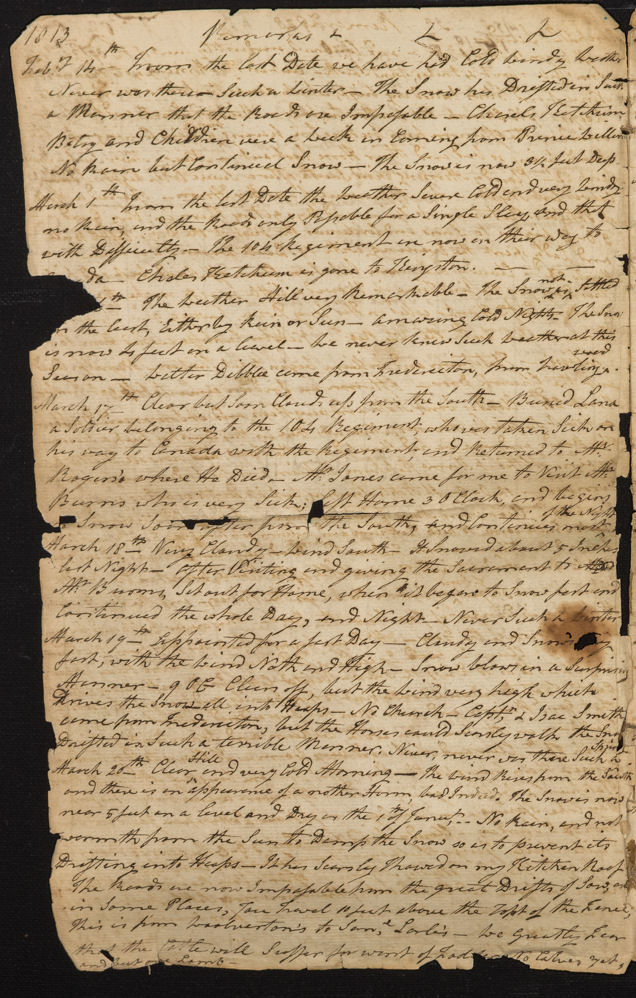 1813
Feb.y 14th From the last Date we have had Cold windy Weather
Never was there Such a Winter — The Snow has Drifted in Such
a Manner that the Roads are Impassable — Charles Ketchum
Betsy and Children were a week in Coming from Prince William
No Rain but Continued Snow — The Snow is now 3½ feet Deep
March 1th From the last Date the Weather Severe Cold and very windy
no Rain, and the Roads only Passable for a Single Sley, and that
with Difficulty — The 104 Regiment are now on their way to
Charles Ketchum is gone to Kingston.
th The Weather Still very Remarkable — The Snow has not Settled
in the least, Either by Rain or Sun — amazing Cold Nights The Snow
is now 4 feet on a level — We never knew Such weather at this
Season — Walter Dibblee came from Fredericton, from
March 17th Clear but Soon Clouds up from the South — Buried
a Soldier belonging to the 104 Regiment, who was taken Sick on
his way to Canada with the Regiment and Returned to Mr.
where He Died — Mr. Jones came for me to Visit Mr.
Burns who is very Sick; left Home 3 O Clock and begins
Snow Soon after from the South, and Continues most of the Night
March 18th Very Cloudy — Wind South — It Snowed about 5 Inches
last Night — After Visiting and giving the Sacrament to
Mr. Burns, Set out for Home, when it began to Snow fast and
Continued the whole Day, and Night — Never Such a Winter
March 19th Appointed for a fast Day — Cloudy and Snowing
fast, with the wind North and High — Snow blows in a Surprising
Manner — 9 O C Clears off, but the wind very high which
Drives the Snow all into Heaps — No Church — Capt. & Isac Smith
came from Fredericton, but the Horses could Scarsly walk the Snow
Drifted in Such a terrible Manner. Never, never was there Such a
March 20th Clear Still and very Cold Morning — the wind Rises from the South
and there is an appearance of another Storm, bad Indeed. The Snow is now
near 5 feet on a level and Dry as the 1st of Jany. — No Rain, and not
warmth from the Sun to Damp the Snow so as to prevent its
Drifting into Heaps — It has Scarsly Thawed on my Kitchen Roof
The Roads are now Impassable from the great Drifts of Snow, and
in Some Places, You Travel 10 feet above the Top of the Fence,
This is from Woolverton's to — We greatly Fear
that the Cattle will Suffer for want of Fodder — No Calves yet,
and but one Lamb —